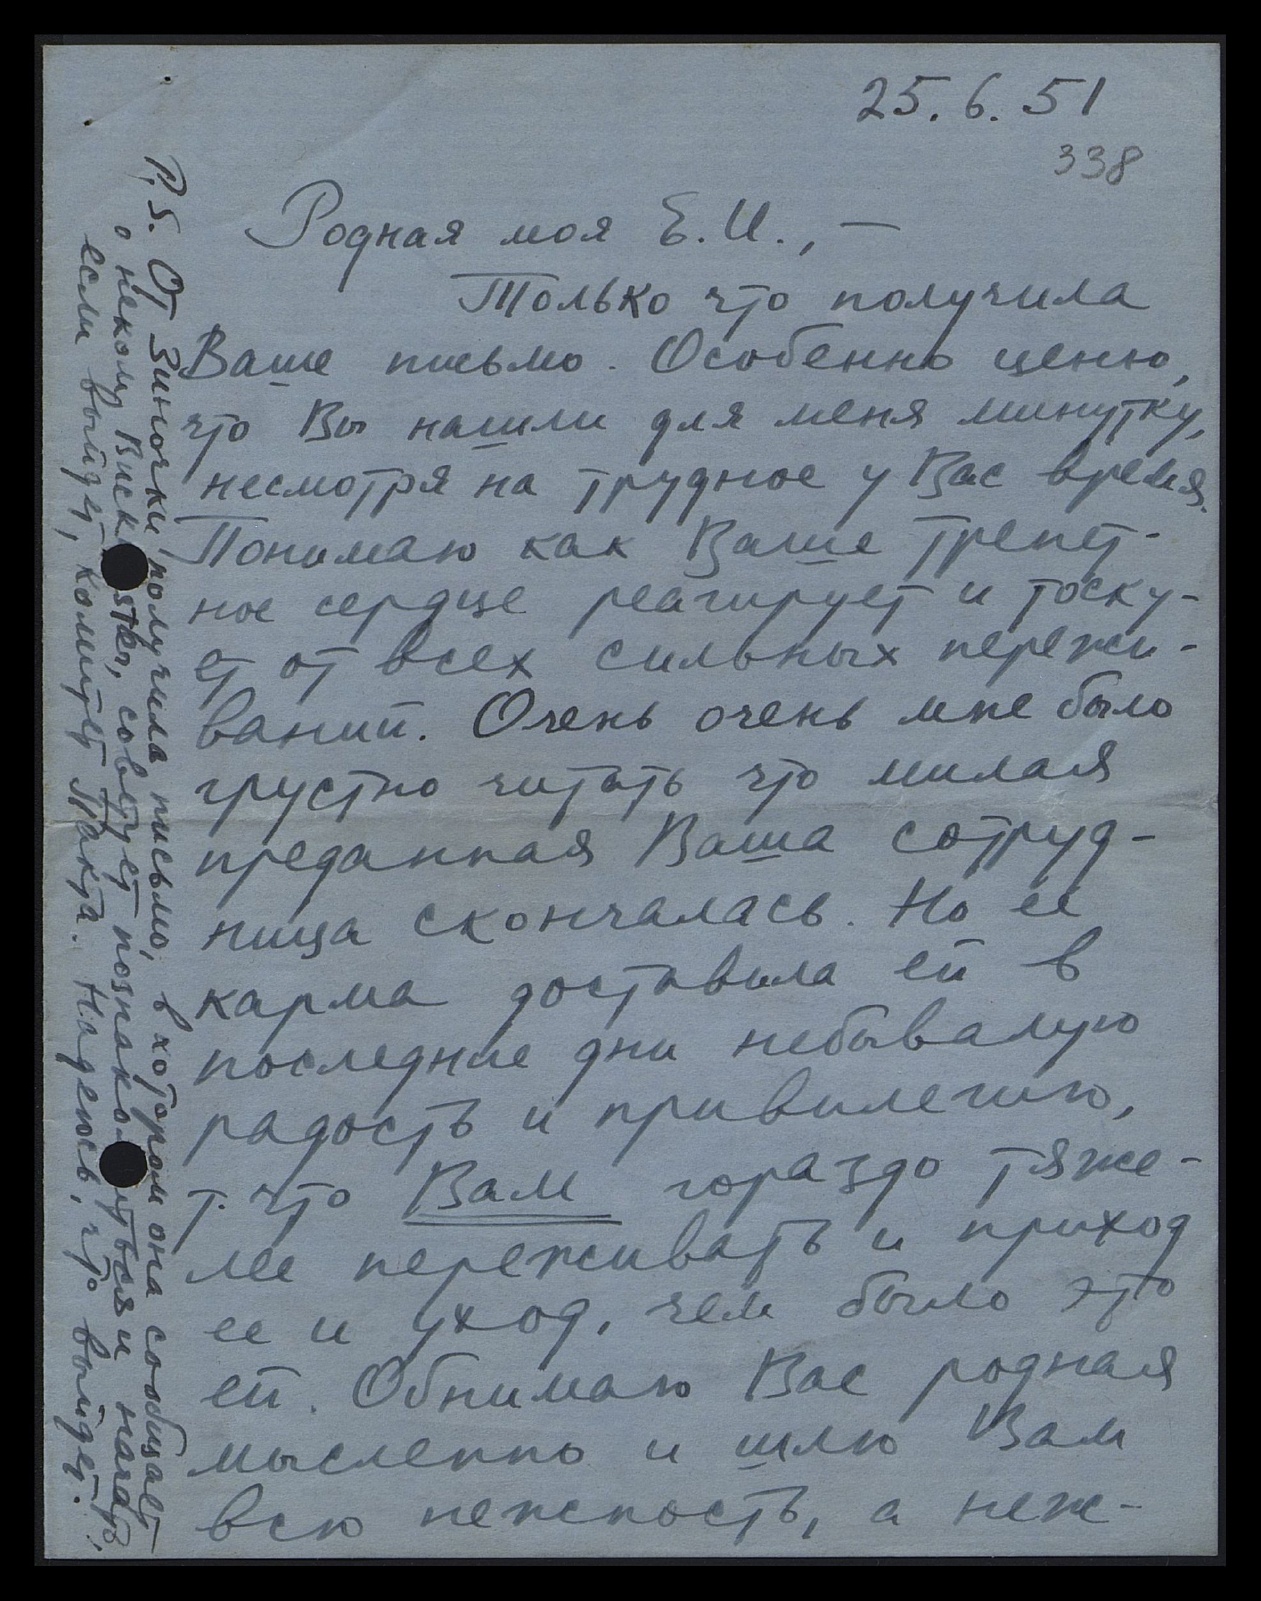 25. 6. 51
338
Родная моя Е.И., —
Только что получила
Ваше письмо. Особенно ценю,
что Вы нашли для меня минутку,
несмотря на трудное у Вас время.
Понимаю как Ваше трепет-
ное сердце реагирует и тоску-
ет от всех сильных пережи-
ваний. Очень очень мне было
грустно читать что милая
преданная Ваша сотруд-
ница скончалась. Но ее
карма доставила ей в
последние дни небывалую
радость и привилегию,
т. что Вам гораздо тяже-
лее переживать и приход
ее и уход, чем было это
ей. Обнимаю Вас родная
мысленно и шлю Вам
всю нежность, а неж-
P.S. От Зиночки получила письмо, в котором она сообщает
о неком, советует познакомиться и начать,
если выйдет, комитет Пакта. Надеюсь, что выйдет.